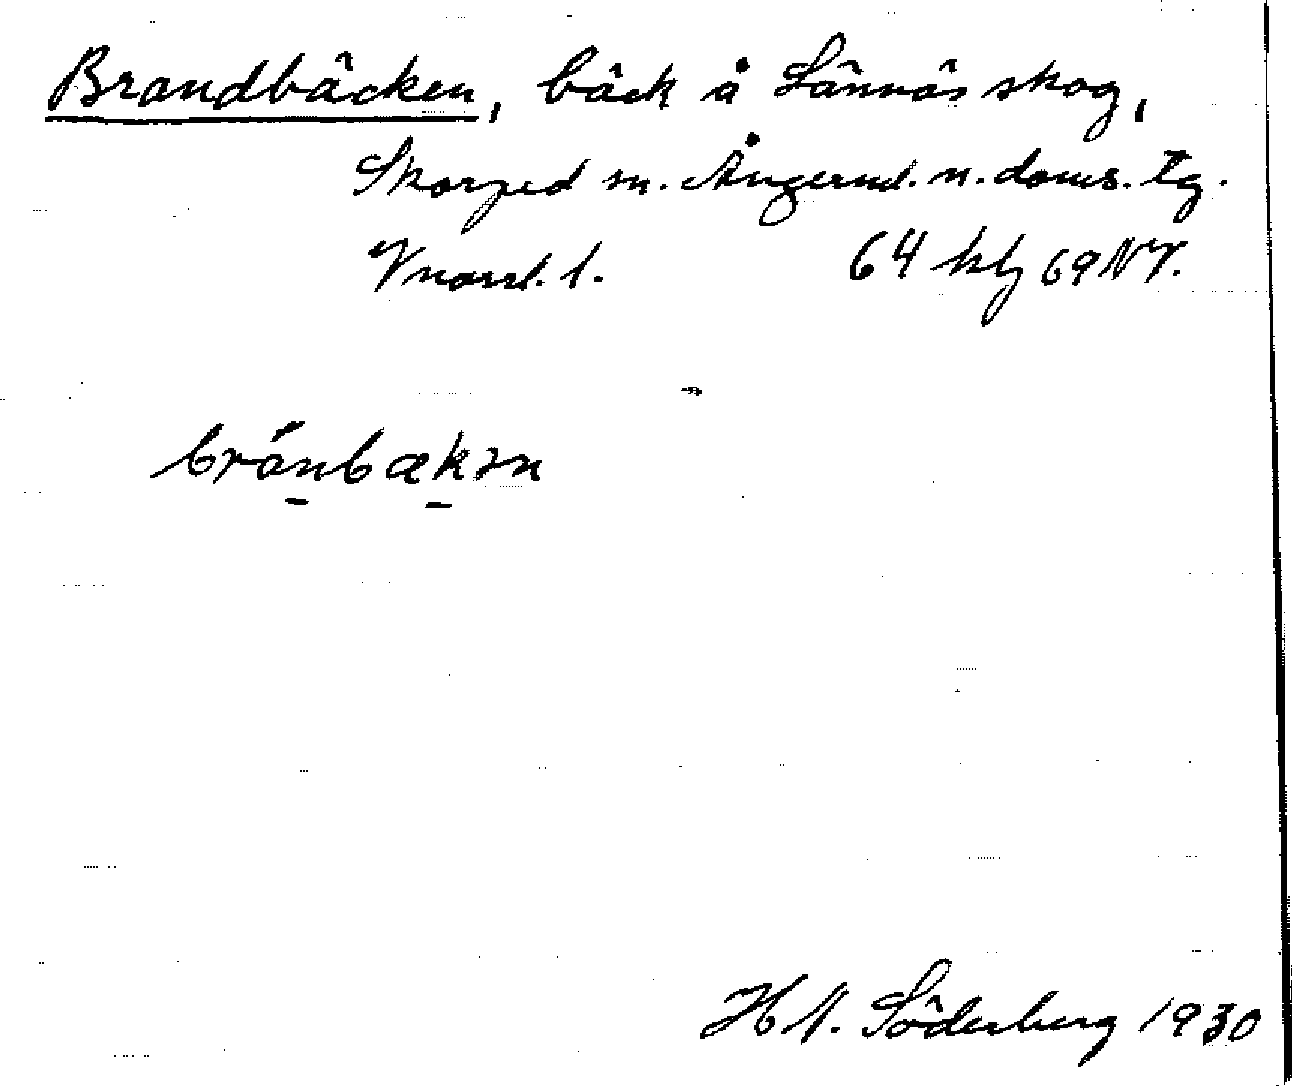 Brandbäcken, bäck å Lännäs skog,
Skorped sn. Ångerml. n. doms. tg.
Vnorrl. l. 64 klg 69 NV.
bránbækɜn
H N. Söderberg 1930